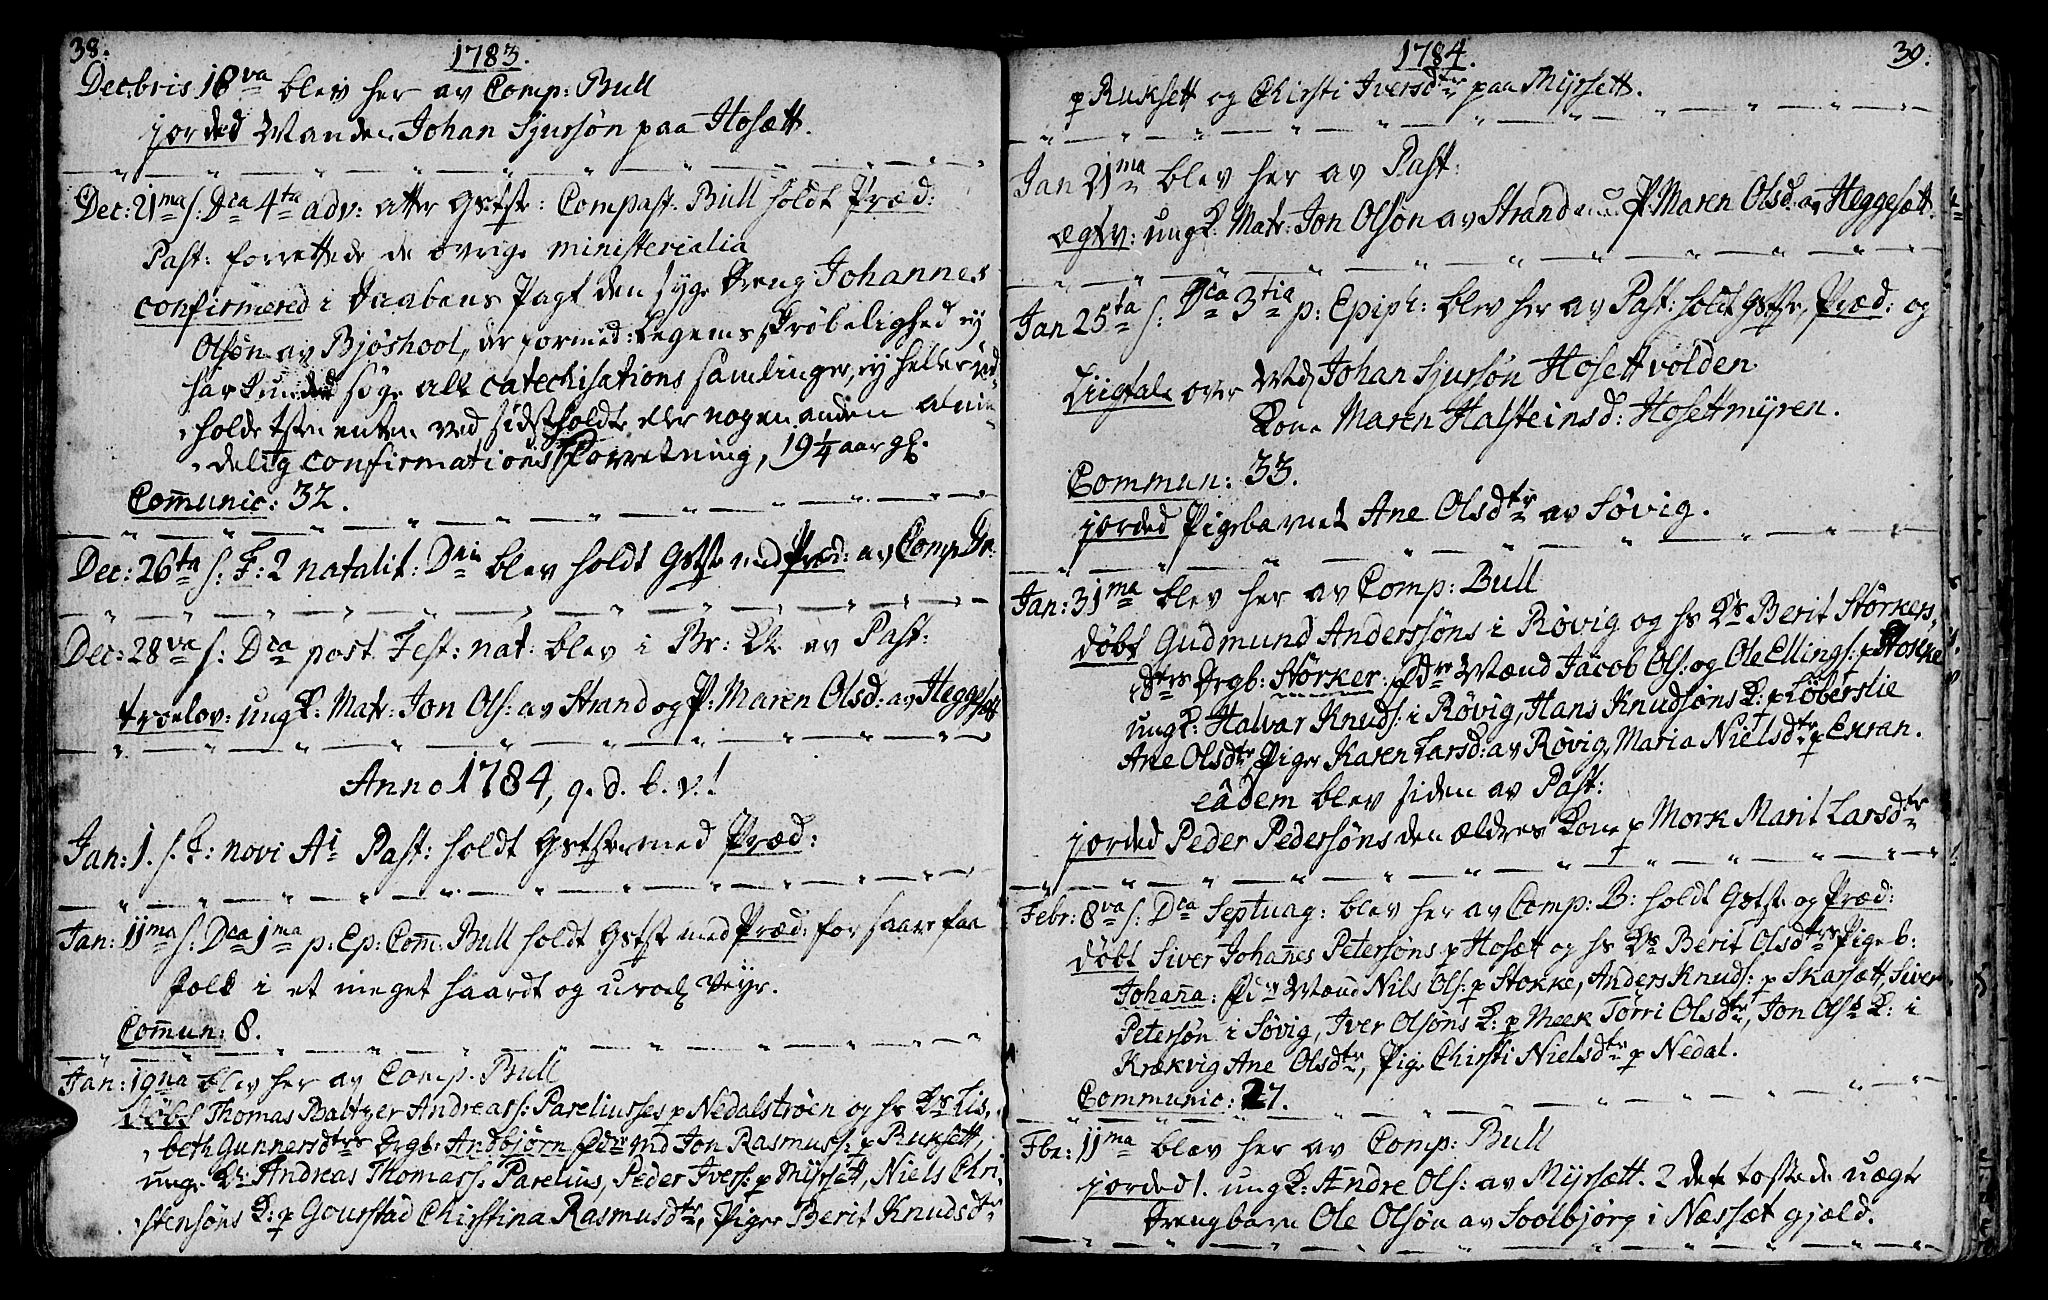 38.
1783.
Decbris 18va blev her av Comp: Bull
jorded Manden Johan Sjursøn paa Hosætt.
Dec: 21ma s: Dca 4ta adv: atter Gstst: Compast. Bull holdt Præd:
Past: forrettede de øvrige ministerialia
confirmered i Daabens Pagt den syge Dreng Johannes
Olsøn av Bjøshool, der formed: Legems skrøbelighed ej
har kundet søge alle catechisations samlinger, ej heller ind-
holdetsten enten ved sidstholdte eller nogen anden almin-
delig confirmations Forretning, 19¼ aar gl.
Com̄unic: 32.
Dec: 26ta s: F: 2 natalit: Dni blev holdt Gstst med Præd: av Comp Br:
Dec: 28va s: Dca post Fest: nat: blev i Br: K av Past:
troelov: ungK: Matr: Jon Ols: av Strand og P: Maren Olsd: av Heggesett
Anno 1784, q. d. b. v.!
Jan: 1. s. F: novi Ai Past: holdt Gstst med Præd:
Jan: 11ma s: Dca 1ma p: Ep: Com̄: Bull holdt Gstst med Præd: for saare faa
Folk i et meget haardt og uroel Veyr.
Com̄un: 8.
Jan: 19na blev her av Comp. Bull
døbt Thomas Baltzer Andreass: Pareliusses p Nedalstrøen og hs Ks Lis-
beth Gunnersdtrs Drgb: Andbjørn Fdre Md Jon Rasmuss: p Ruksett,
ungK: Andreas Thomass: Parelius, Peder Ivers: p Myrsett, Niels Chri-
stensøns K: p Gourstad Chirstina Rasmusdtr, Piger Berit Knudsdtr
1784.
39.
p Ruksett og Chirsti Iversdtr paa Myrsett.
Jan 21ma blev her av Past:
ægtv: ungK: Matr: Jon Olsøn av Strand P: Maren Olsd: av Heggesætt.
Jan 25ta s: Dca 3tia p: Epiph: blev her av Past: holdt Gstst, Præd: og
Liigtale over Md Johan Sjursøn Hosettvolden
Kone Maren Halsteinsd: Hosettmyren.
Commun: 33.
jorded Pigebarnet Ane Olsdtr av Søvig.
Jan: 31ma blev her av Comp: Bull
døbt Gudmund Anderssøns i Røvig og hs Ks Berit Størkers-
dtrs Drgb: Størker: Fdre Mænd Jacob Ols: og Ole Ellings: p Stokke
ungK: Halvar Knuds: i Røvig, Hans Knudsøns K: p Løberslie
Ane Olsdtr, Piger Karen Larsd: av Røvig, Maria Nielsdtr p Exran.
eâdem blev siden av Past:
jorded Peder Pedersøns den ældres Kone p Mork Marit Larsdtr
Febr: 8va s: Dca Septuag: blev her av Comp: B: holdt Gstst og Præd:
døbt Siver Johan̄es Petersøns p Hosæt og hs Ks Berit Olsdtrs Pigeb:
Johan̄a: Fdre Mænd Nils Ols: p Stokke, Anders Knuds: p Skarsætt, Siver
Petersøn i Søvig, Iver Olsøns K: p Meek Tørri Olsdtr, Jon Olss K: i
Krækvig Ane Olsdtr, Pige Chirsti Nielsdtr p Nedal.
Communic: 27.
Fbr: 11ma blev her av Comp: Bull
jorded 1. ungK: Andre Ols: av Myrsætt. 2 det
Drengbarn Ole Olsøn av Soolbjørg i Næssæt gjæld.